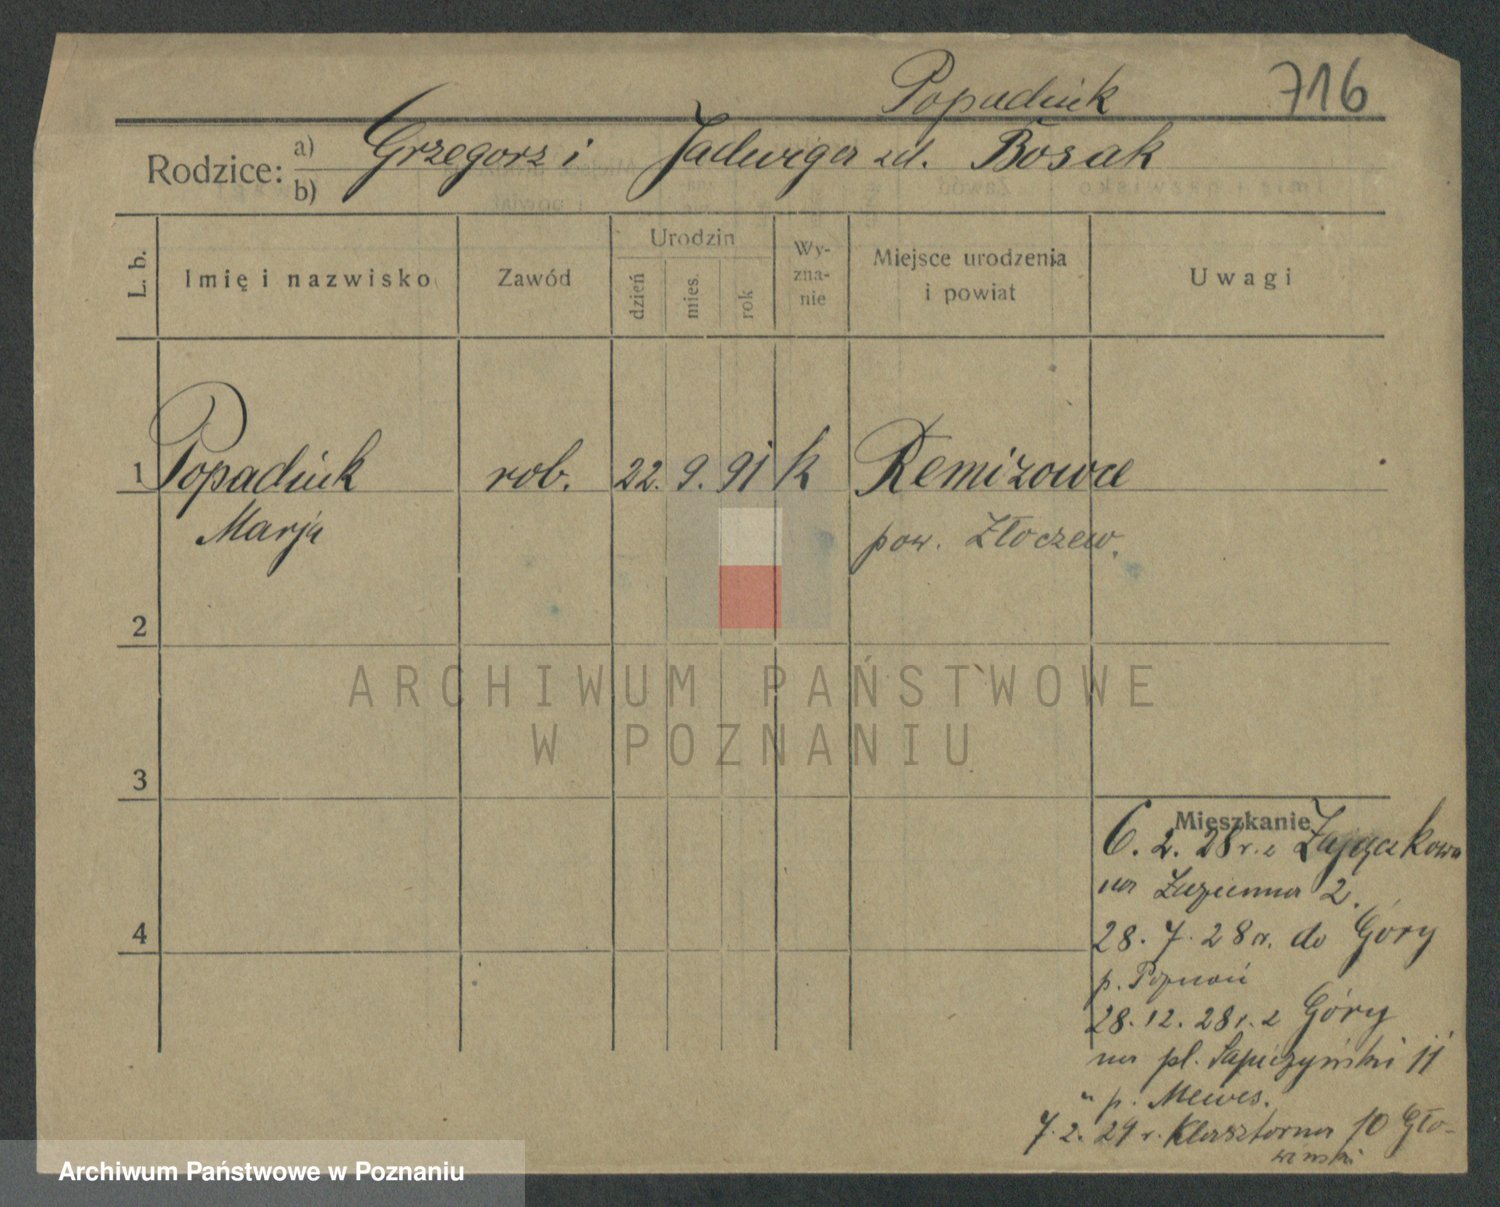 Popadiuk 716
Rodzice: a) Grzegorz i Jadwiga zd. Bosak
b)
L. b. Imię i nazwisko Zawód Urodzin dzień mies. rok Wyznanie Miejsce urodzenia i powiat Uwagi
1 Popadiuk rob. 22. 9. 91 k Remizowce
Marja pow. Złoczew.
2
ARCHIWUM PAŃSTWOWE
W POZNANIU
3
Mieszkanie
6. 2. 28 r. z Zajączkowa
na Łazienna 2.
4
28. 7. 28 r. do Góry
p. Poznań
28. 12. 28 r. z Góry
na pl. Sapieżyński 11
" p. Mewes.
7. 2. 29 r. Klasztorna 10 Gło-
wiński
Archiwum Państwowe w Poznaniu